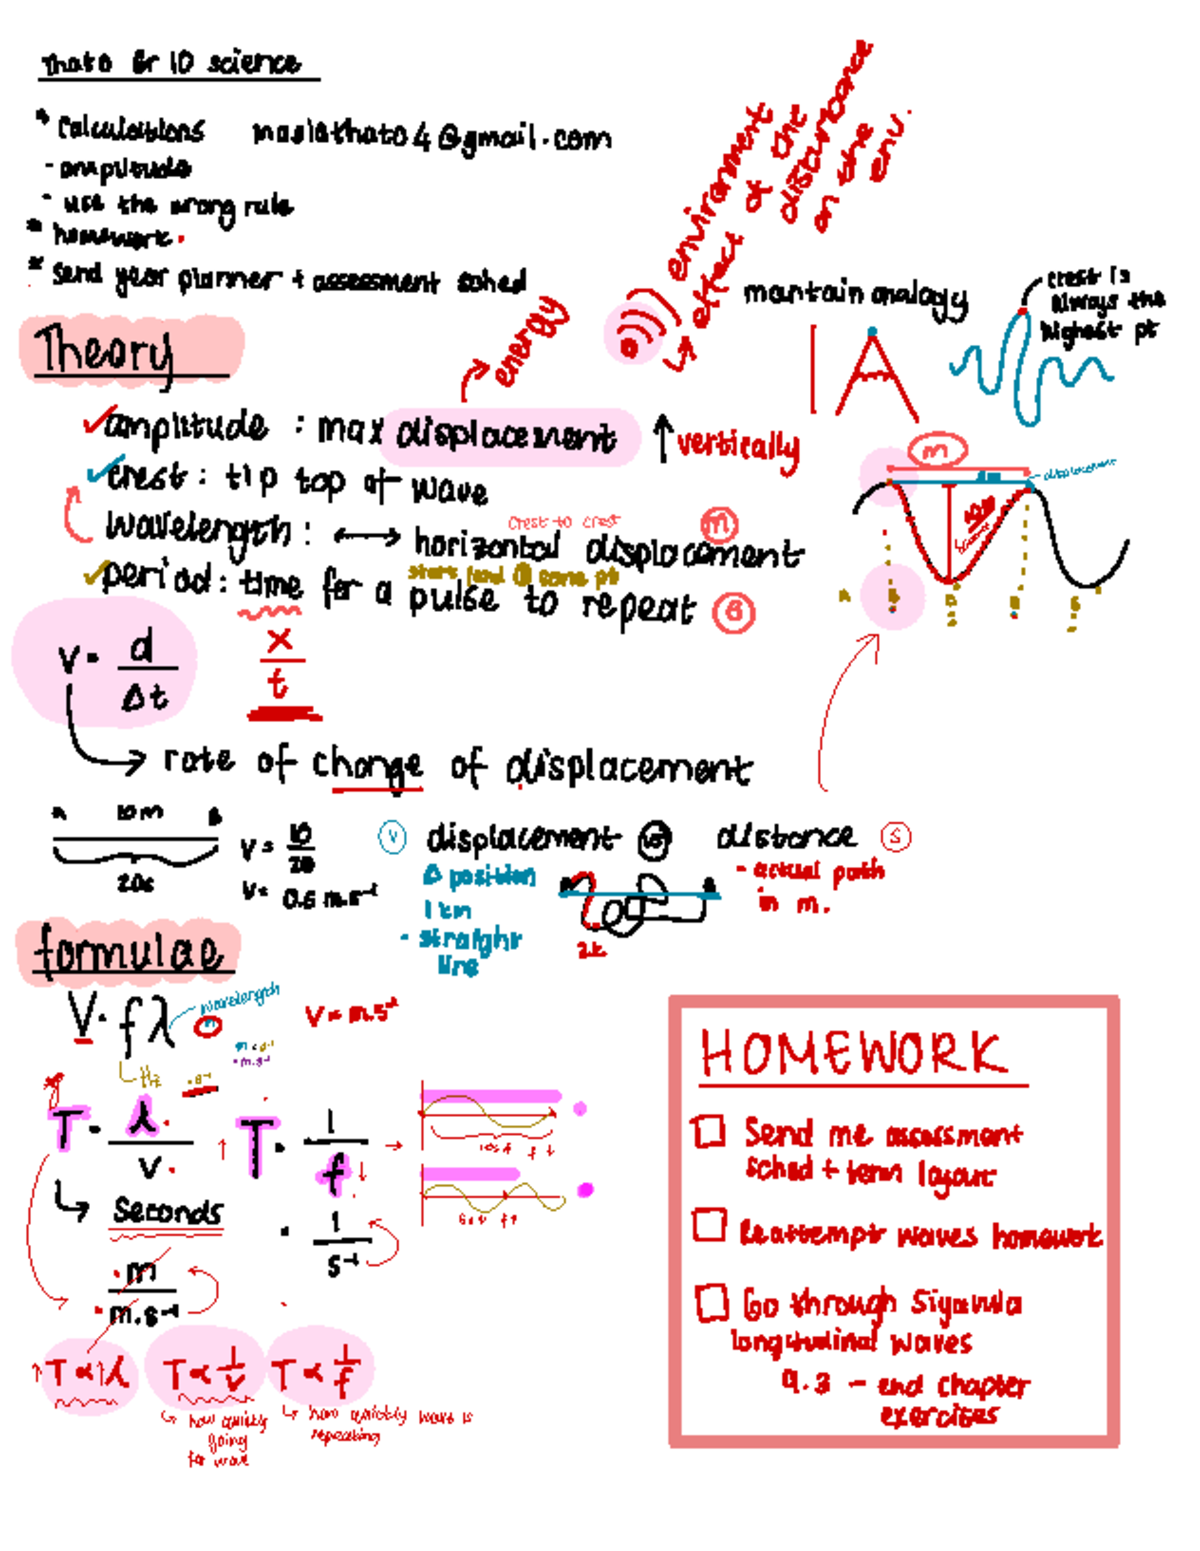 thato Gr 10 science
* Calculations
maslathato4@gmail.com
- amplitude
- use the wrong rule
* homework.
* Send year planner + assessment sched
environment
effect of the
disturbance
on the
env.
energy
maintain analogy
A
crest is
always the
highest pt
Theory
amplitude : max displacement ↑ vertically
crest : tip top of wave
crest to crest
wavelength : ↔ horizontal displacement m
start / end @ same pt
period : time for a pulse to repeat S
m
displacement
V = d / Δt
x / t
→ rate of change of displacement
A 10m B
20s
V = 10 / 20
V = 0.5 m.s⁻¹
V displacement vs distance S
Δ position
1 km
- straight
line
2k
- actual path
in m.
formulae
V = fλ
wavelength
m
Hz
.s⁻¹
m.s⁻¹
V = m.s⁻¹
T = λ / V
↑ T = 1 / f ↓ →
↳ Seconds
= 1 / s⁻¹
m / m.s⁻¹
↑T ∝ ↑λ
T ∝ 1/v
T ∝ 1/f
↳ how quickly
going
for wave
↳ how quickly wave is
repeating
HOMEWORK
Send me assessment
sched + term layout
Reattempt waves homework
Go through Siyavula
longitudinal waves
9.3 - end chapter
exercises